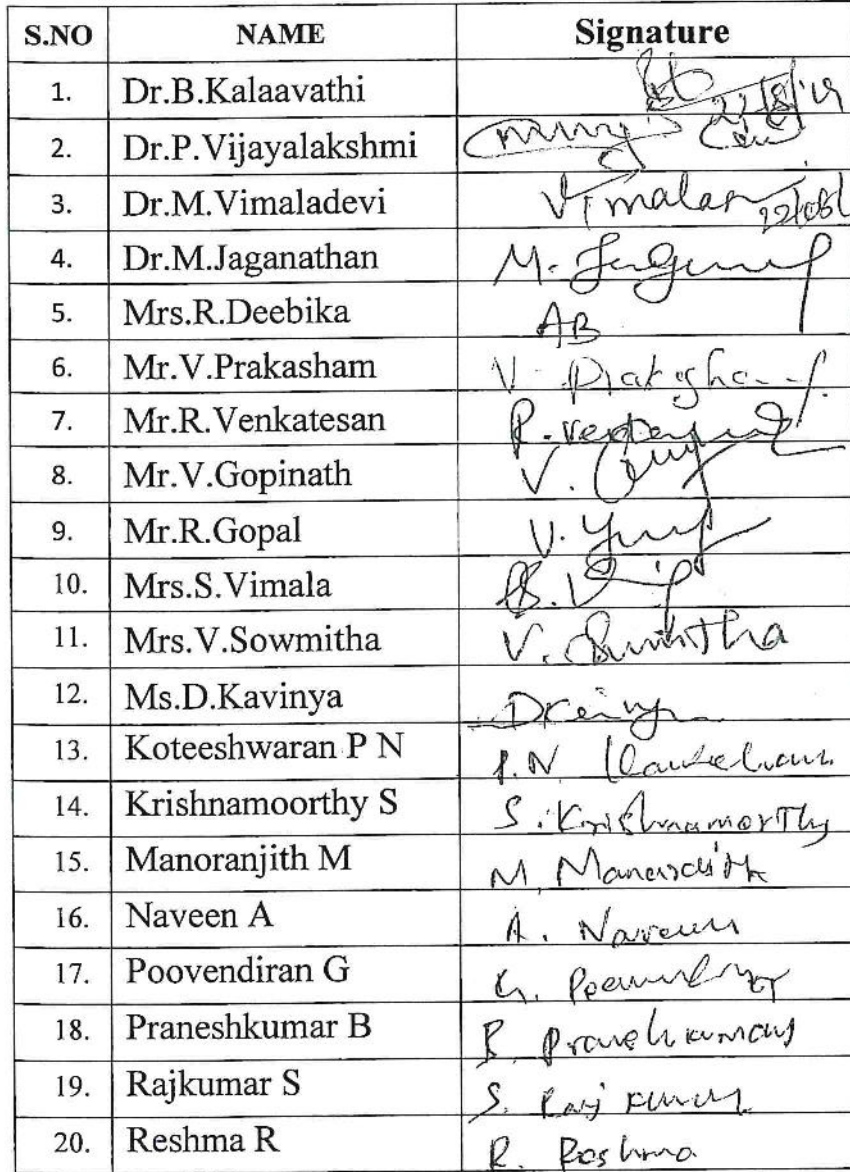 S.NO NAME Signature
1. Dr.B.Kalaavathi 22/8/19
2. Dr.P.Vijayalakshmi
3. Dr.M.Vimaladevi 22/08/
4. Dr.M.Jaganathan M.
5. Mrs.R.Deebika AB
6. Mr.V.Prakasham V.
7. Mr.R.Venkatesan R.
8. Mr.V.Gopinath V.
9. Mr.R.Gopal V.
10. Mrs.S.Vimala
11. Mrs.V.Sowmitha V.
12. Ms.D.Kavinya
13. Koteeshwaran P N P.N
14. Krishnamoorthy S S. Krishnamorthy
15. Manoranjith M M.
16. Naveen A A. Naveen
17. Poovendiran G G.
18. Praneshkumar B B.
19. Rajkumar S S. Raj kumar
20. Reshma R R. Reshma